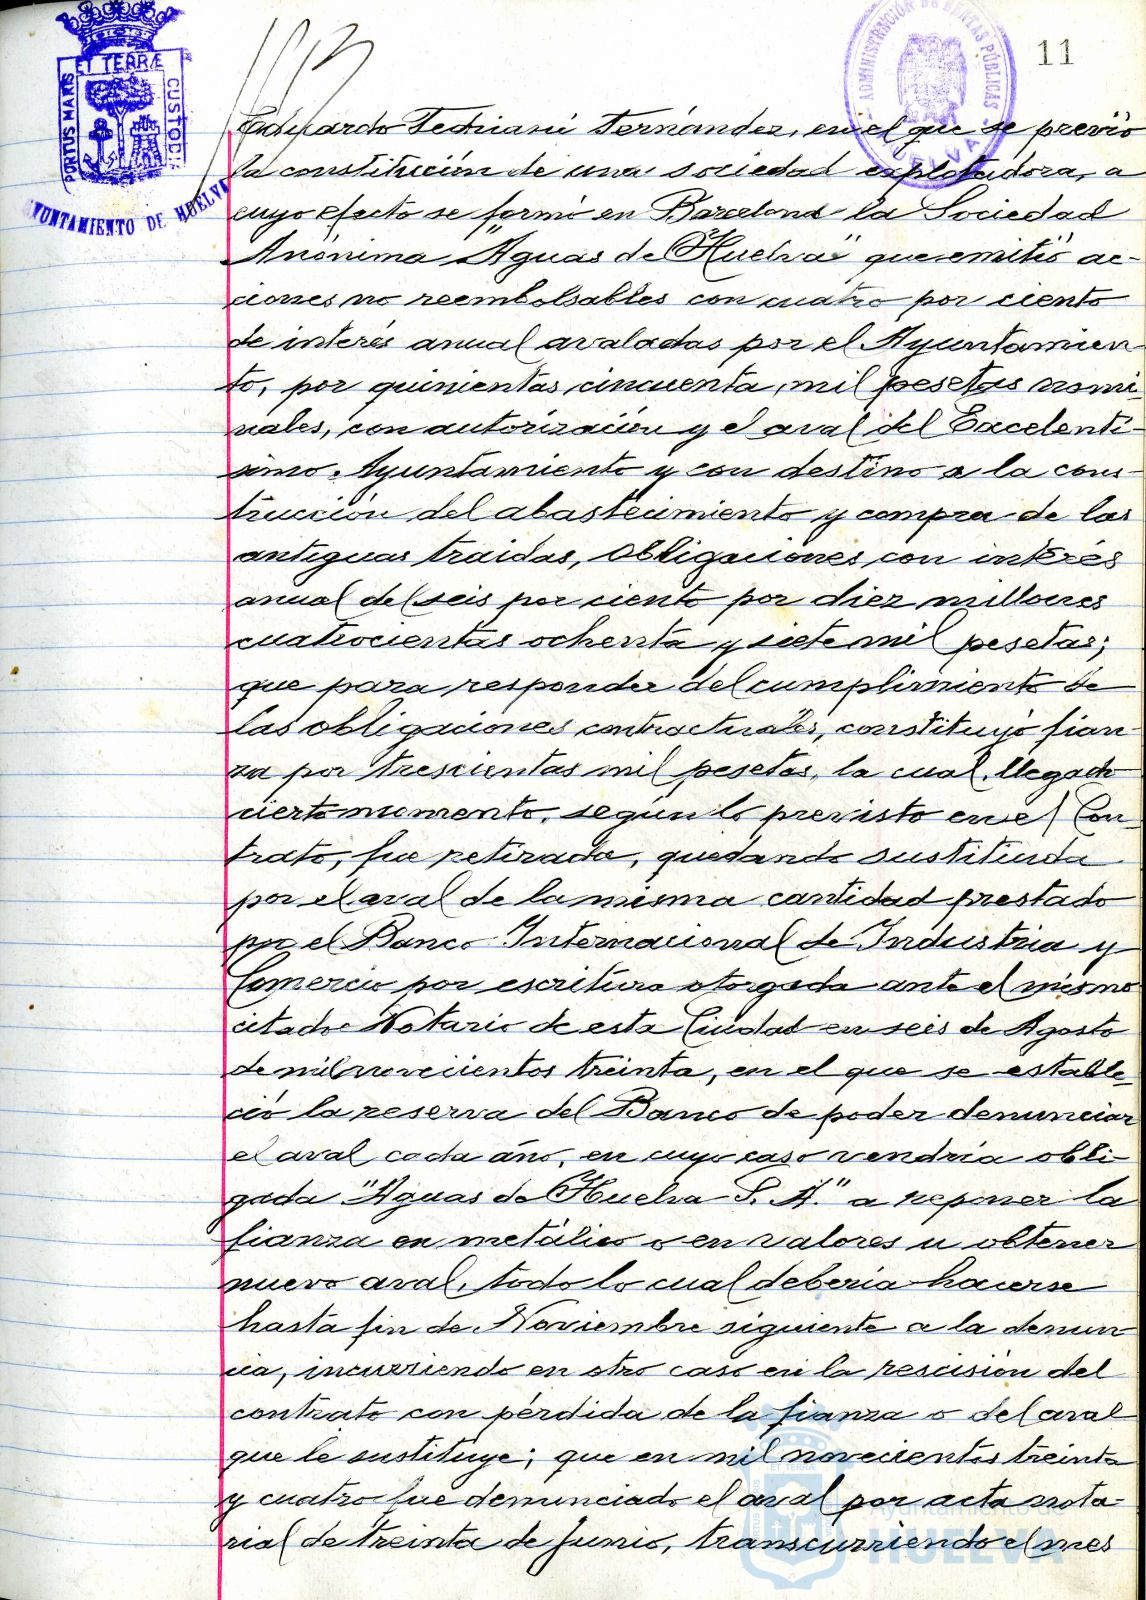 11
ET TERRÆ
PORTUS MARIS
CUSTODIA
AYUNTAMIENTO DE HUELVA
ADMINISTRACIÓN DE RENTAS PÚBLICAS
HUELVA
Eduardo Fernandez, en el que se previó
la constitución de una sociedad explotadora, a
cuyo efecto se formó en Barcelona la Sociedad
Anónima "Aguas de Huelva" que emitió ac-
ciones no reembolsables con cuatro por ciento
de interés anual avaladas por el Ayuntamien-
to, por quinientas cincuenta mil pesetas nomi-
nales, con autorización y el aval del Excelentí-
simo Ayuntamiento y con destino a la cons-
trucción del abastecimiento y compra de las
antiguas traidas, obligaciones con interés
anual del seis por ciento por diez millones
cuatrocientas ochenta y siete mil pesetas;
que para responder del cumplimiento de
las obligaciones contractuales, constituyó fian-
za por trescientas mil pesetas, la cual, llegado
cierto momento, según lo previsto en el Con-
trato, fue retirada, quedando sustituida
por el aval de la misma cantidad prestado
por el Banco Internacional de Industria y
Comercio por escritura otorgada ante el mismo
citado Notario de esta Ciudad en seis de Agosto
de mil novecientos treinta, en el que se estable-
ció la reserva del Banco de poder denunciar
el aval cada año, en cuyo caso vendría obli-
gada "Aguas de Huelva S. A." a reponer la
fianza en metálico o en valores u obtener
nuevo aval, todo lo cual debería hacerse
hasta fin de Noviembre siguiente a la denun-
cia, incurriendo en otro caso en la rescisión del
contrato con pérdida de la fianza o del aval
que le sustituye; que en mil novecientos treinta
y cuatro fue denunciado el aval por acta nota-
rial de treinta de Junio, transcurriendo el mes
Ayuntamiento de
HUELVA